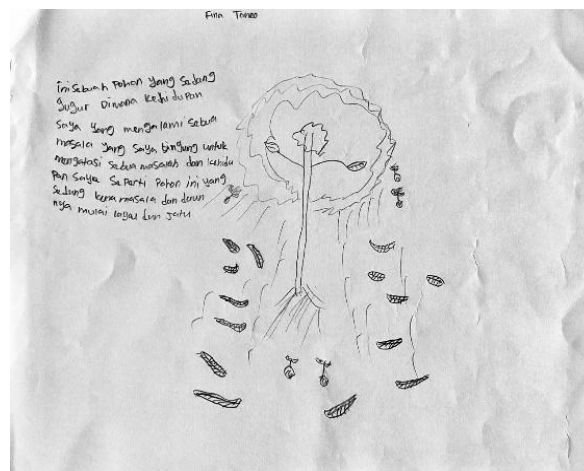 Fina Taneo
ini sebuah Pohon yang sedang
gugur Dimana kehidupan
saya yang mengalami sebua
masala yang saya bingung untuk
mengatasi sebua masalah dan kehidu
Pan saya seperti Pohon ini yang
sedang kena masala dan daun
nya mulai layu dan jatu